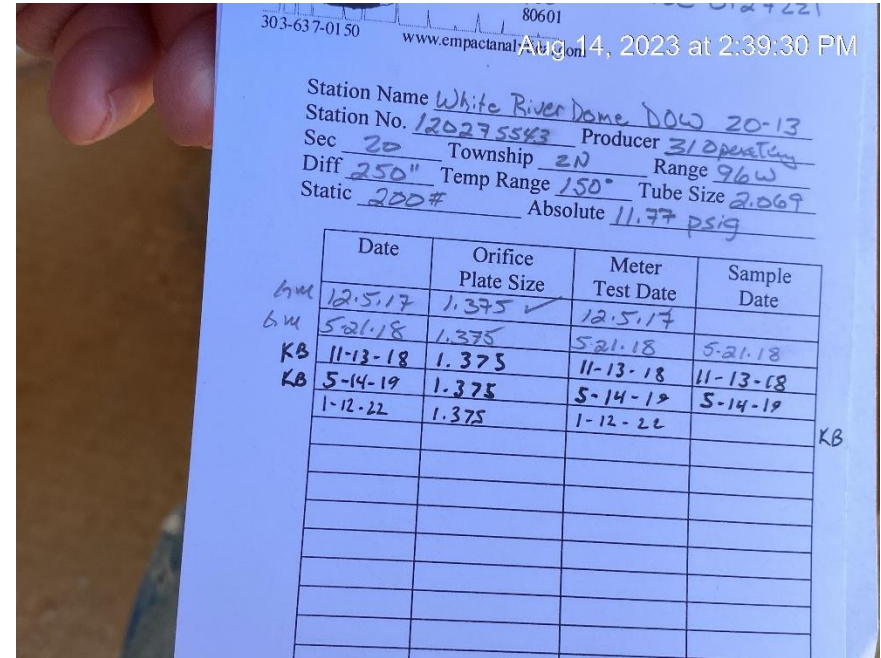 80601
303-637-0150
www.empactanal
Aug 14, 2023 at 2:39:30 PM
Station Name White River Dome DOW 20-13
Station No. 120275543 Producer 31 Operating
Sec 20 Township 2N Range 96W
Diff 250" Temp Range 150° Tube Size 2.069
Static 200# Absolute 11.77 psig
Date Orifice Plate Size Meter Test Date Sample Date
GM 12.5.17 1.375 ✓ 12.5.17
GM 5-21.18 1.375 5-21.18 5-21.18
KB 11-13-18 1.375 11-13-18 11-13-18
KB 5-14-19 1.375 5-14-19 5-14-19
1-12-22 1.375 1-12-22 KB